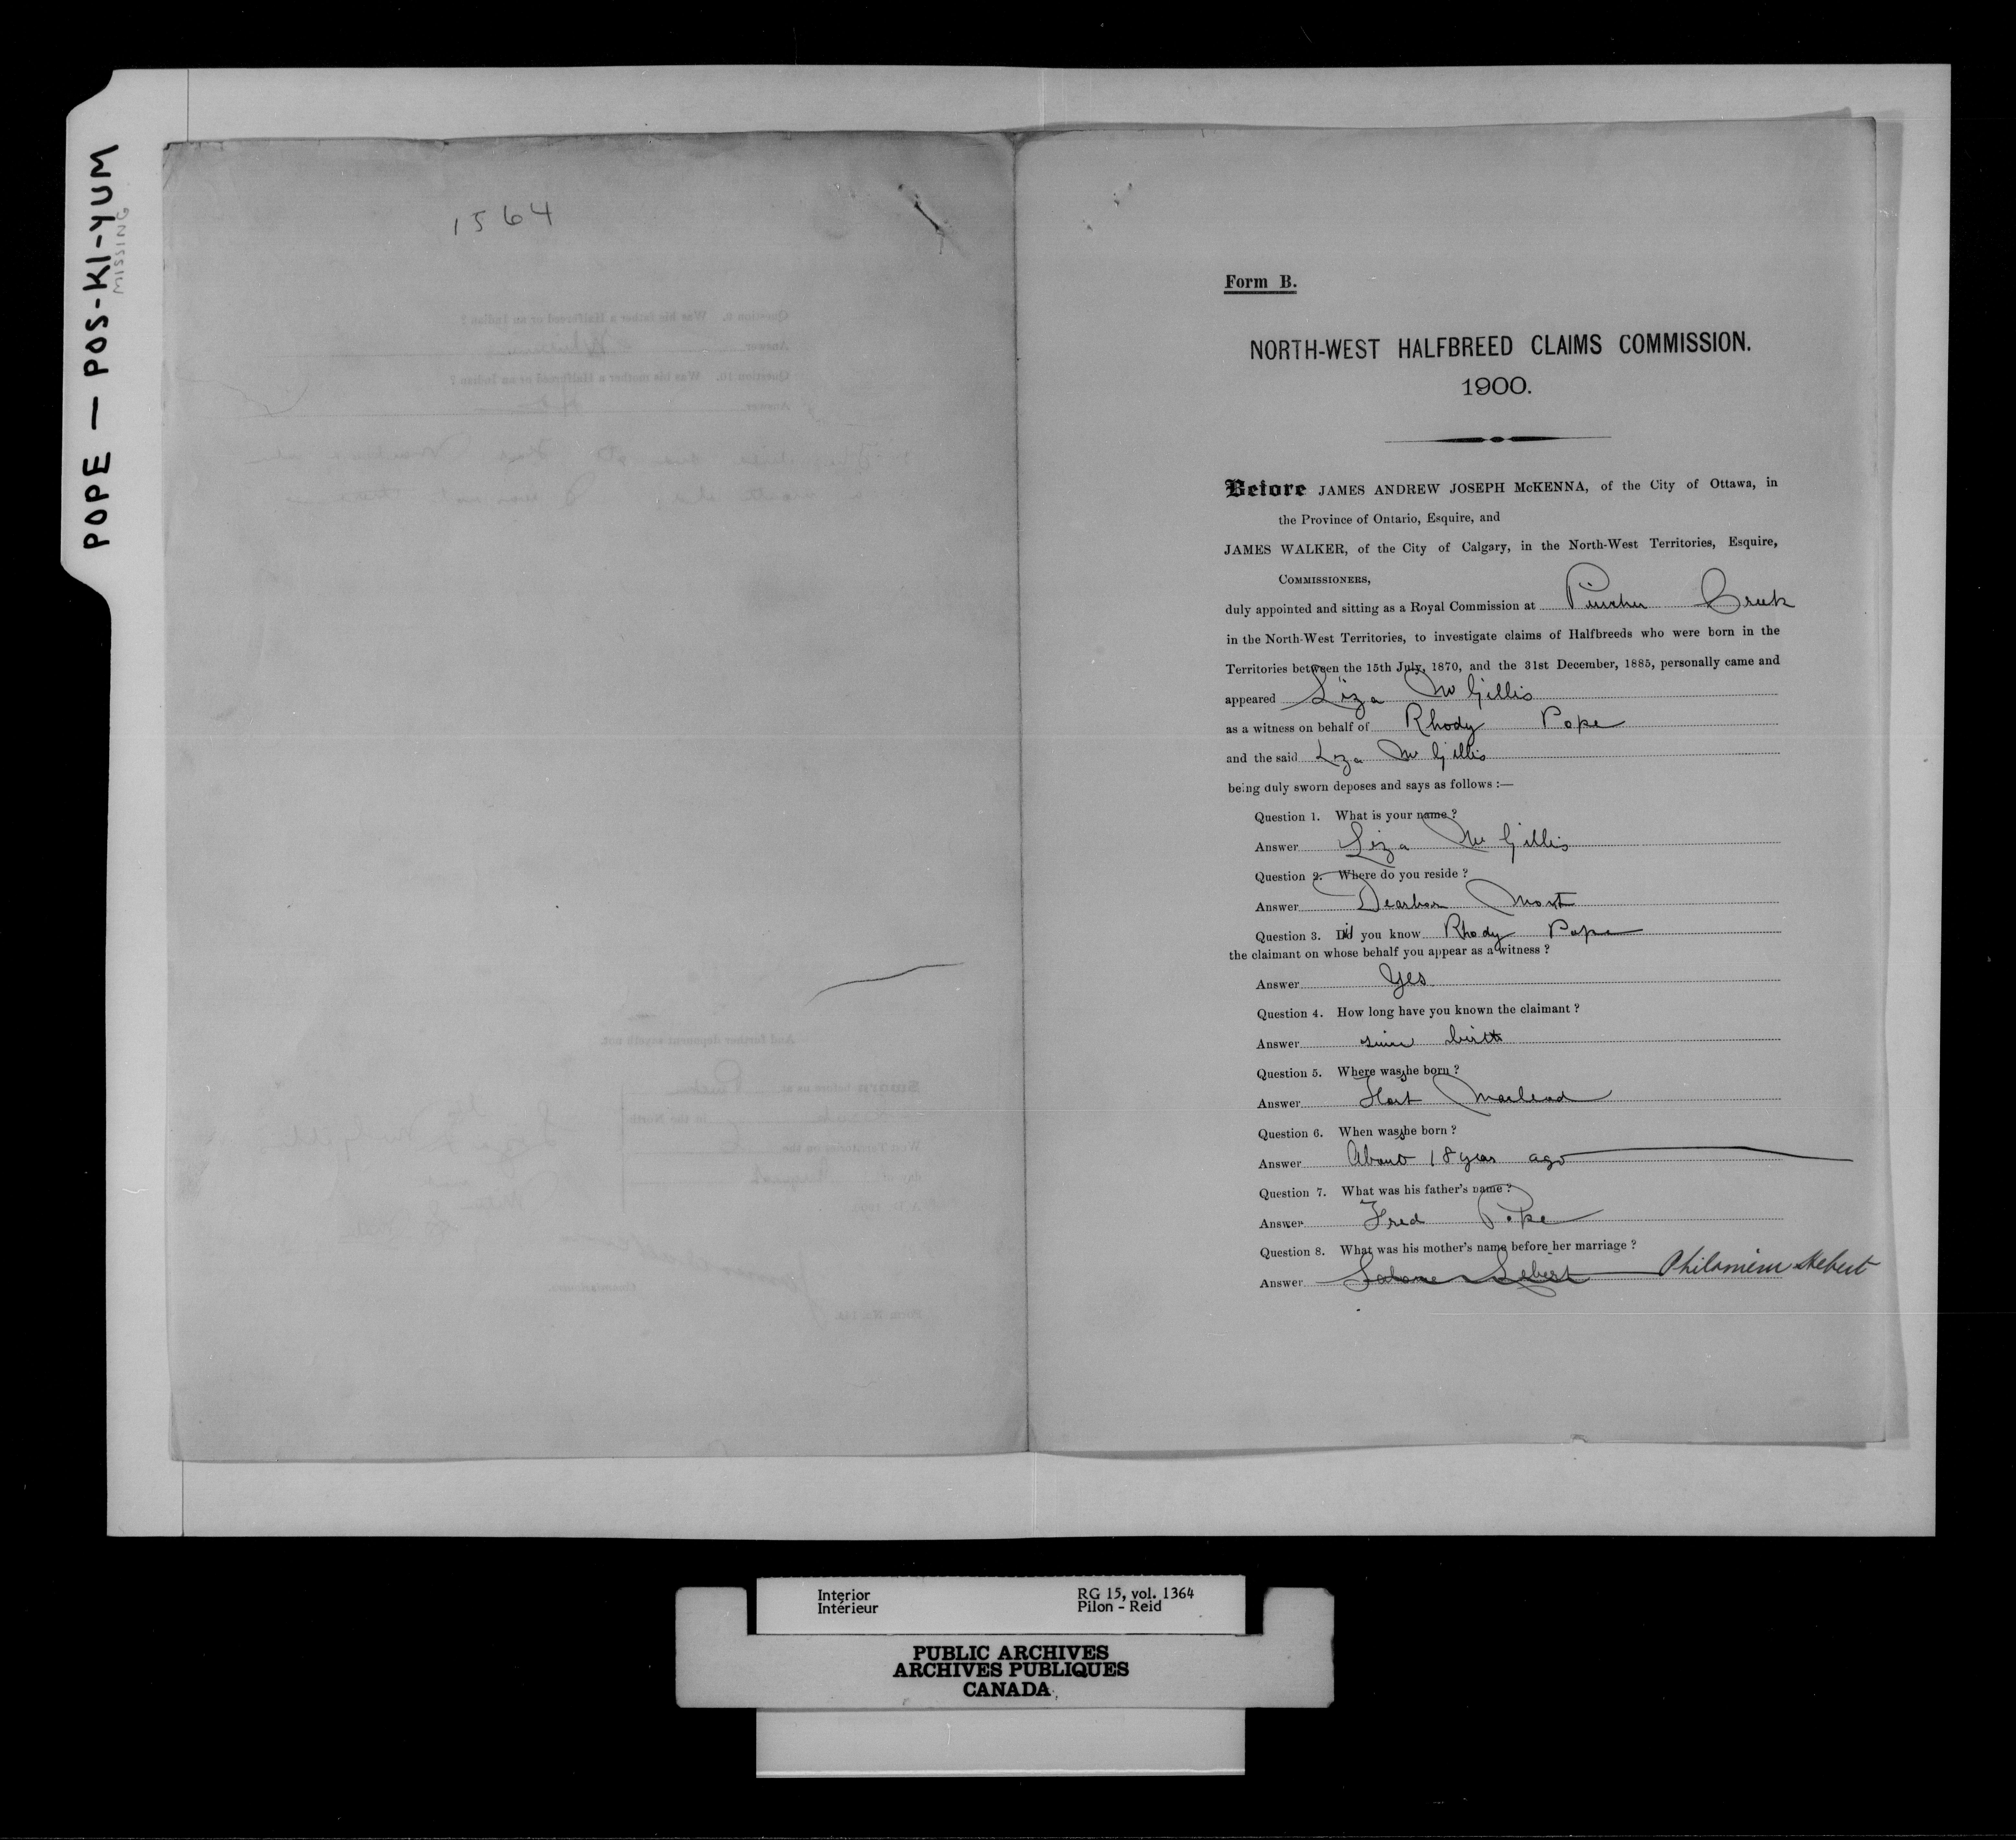 POPE — POS-KI-YUM
MISSING
1564
Form B.
NORTH-WEST HALFBREED CLAIMS COMMISSION.
1900.
Before JAMES ANDREW JOSEPH McKENNA, of the City of Ottawa, in
the Province of Ontario, Esquire, and
JAMES WALKER, of the City of Calgary, in the North-West Territories, Esquire,
COMMISSIONERS,
duly appointed and sitting as a Royal Commission at Pincher Creek
in the North-West Territories, to investigate claims of Halfbreeds who were born in the
Territories between the 15th July, 1870, and the 31st December, 1885, personally came and
appeared Liza McGillis
as a witness on behalf of Rhody Pope
and the said Liza McGillis
being duly sworn deposes and says as follows :—
Question 1. What is your name ?
Answer Liza McGillis
Question 2. Where do you reside ?
Answer Dearborn Mont
Question 3. Did you know Rhody Pope
the claimant on whose behalf you appear as a witness ?
Answer Yes
Question 4. How long have you known the claimant ?
Answer since birth
Question 5. Where was she born ?
Answer Fort Macleod
Question 6. When was she born ?
Answer About 18 years ago
Question 7. What was his father's name ?
Answer Fred Pope
Question 8. What was his mother's name before her marriage ?
Answer Philomene Hebert
Interior
Intérieur
RG 15, vol. 1364
Pilon - Reid
PUBLIC ARCHIVES
ARCHIVES PUBLIQUES
CANADA